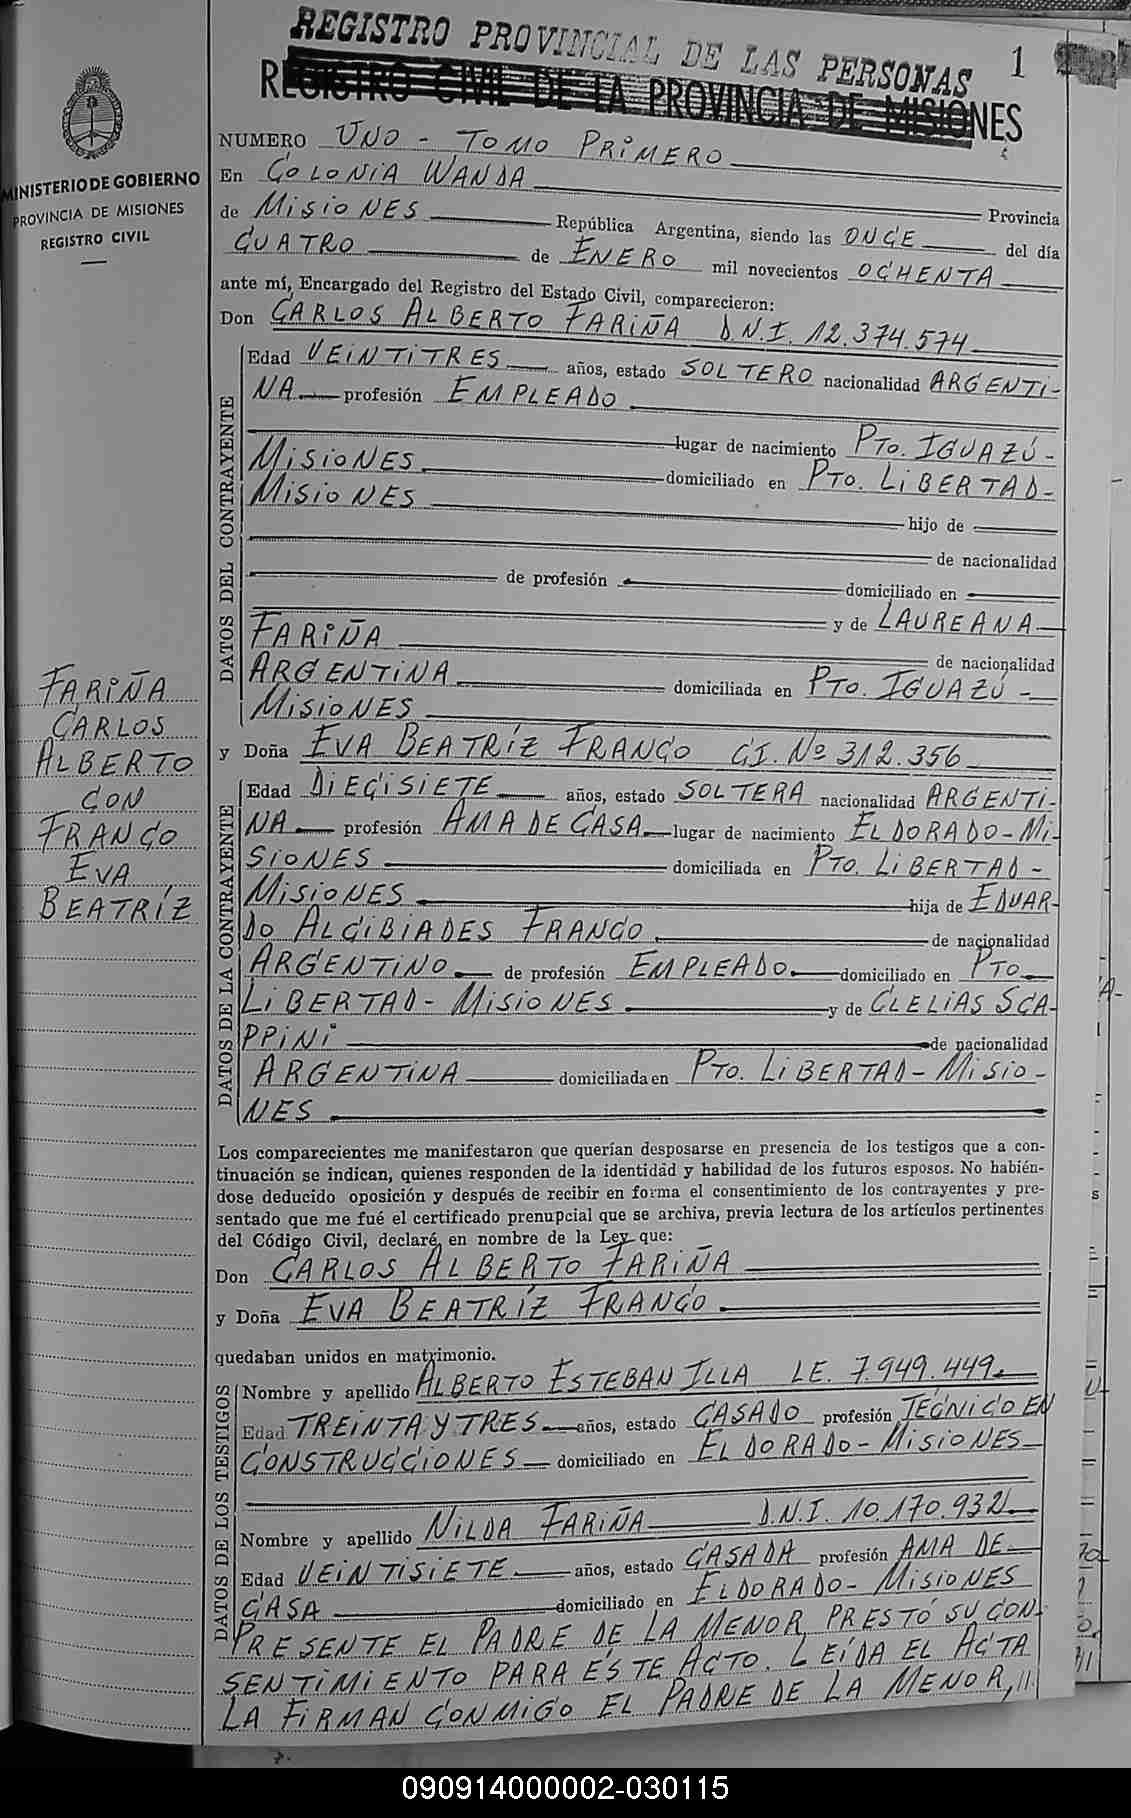 REGISTRO PROVINCIAL DE LAS PERSONAS 1
REGISTRO CIVIL DE LA PROVINCIA DE MISIONES
MINISTERIO DE GOBIERNO
PROVINCIA DE MISIONES
REGISTRO CIVIL
NUMERO UNO - TOMO PRIMERO
En COLONIA WANDA Provincia
de MISIONES República Argentina, siendo las ONCE del día
CUATRO de ENERO mil novecientos OCHENTA
ante mí, Encargado del Registro del Estado Civil, comparecieron:
Don CARLOS ALBERTO FARIÑA D.N.I. 12.374.574
DATOS DEL CONTRAYENTE
Edad VEINTITRES años, estado SOLTERO nacionalidad ARGENTI-
NA profesión EMPLEADO
lugar de nacimiento PTO. IGUAZÚ-
MISIONES domiciliado en PTO. LIBERTAD-
MISIONES hijo de
de nacionalidad
de profesión domiciliado en
y de LAUREANA
FARIÑA de nacionalidad
ARGENTINA domiciliada en PTO. IGUAZÚ-
MISIONES
FARIÑA
CARLOS
ALBERTO
CON
FRANCO
EVA
BEATRÍZ
y Doña EVA BEATRÍZ FRANCO CI. Nº 312.356
DATOS DE LA CONTRAYENTE
Edad DIECISIETE años, estado SOLTERA nacionalidad ARGENTI-
NA profesión AMA DE CASA lugar de nacimiento ELDORADO-MI-
SIONES domiciliada en PTO. LIBERTAD-
MISIONES hija de EDUAR-
DO ALCIBIADES FRANCO de nacionalidad
ARGENTINO de profesión EMPLEADO domiciliado en PTO
LIBERTAD-MISIONES y de CLELIAS SCA-
PPINI de nacionalidad
ARGENTINA domiciliada en PTO. LIBERTAD-MISIO-
NES
Los comparecientes me manifestaron que querían desposarse en presencia de los testigos que a con-
tinuación se indican, quienes responden de la identidad y habilidad de los futuros esposos. No habién-
dose deducido oposición y después de recibir en forma el consentimiento de los contrayentes y pre-
sentado que me fué el certificado prenupcial que se archiva, previa lectura de los artículos pertinentes
del Código Civil, declaré en nombre de la Ley que:
Don CARLOS ALBERTO FARIÑA
y Doña EVA BEATRÍZ FRANCO
quedaban unidos en matrimonio.
DATOS DE LOS TESTIGOS
Nombre y apellido ALBERTO ESTEBAN ILLA LE. 7.949.449
Edad TREINTA Y TRES años, estado CASADO profesión TECNICO EN
CONSTRUCCIONES domiciliado en ELDORADO-MISIONES
Nombre y apellido NILDA FARIÑA D.N.I. 10.170.932
Edad VEINTISIETE años, estado CASADA profesión AMA DE
CASA domiciliado en ELDORADO-MISIONES
PRESENTE EL PADRE DE LA MENOR PRESTÓ SU CON-
SENTIMIENTO PARA ÉSTE ACTO. LEÍDA EL ACTA
LA FIRMAN CONMIGO EL PADRE DE LA MENOR,//
090914000002-030115